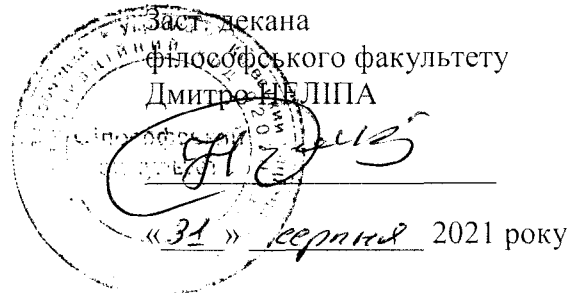 Заст. декана
філософського факультету
Дмитро НЕЛІПА
«31» серпня 2021 року